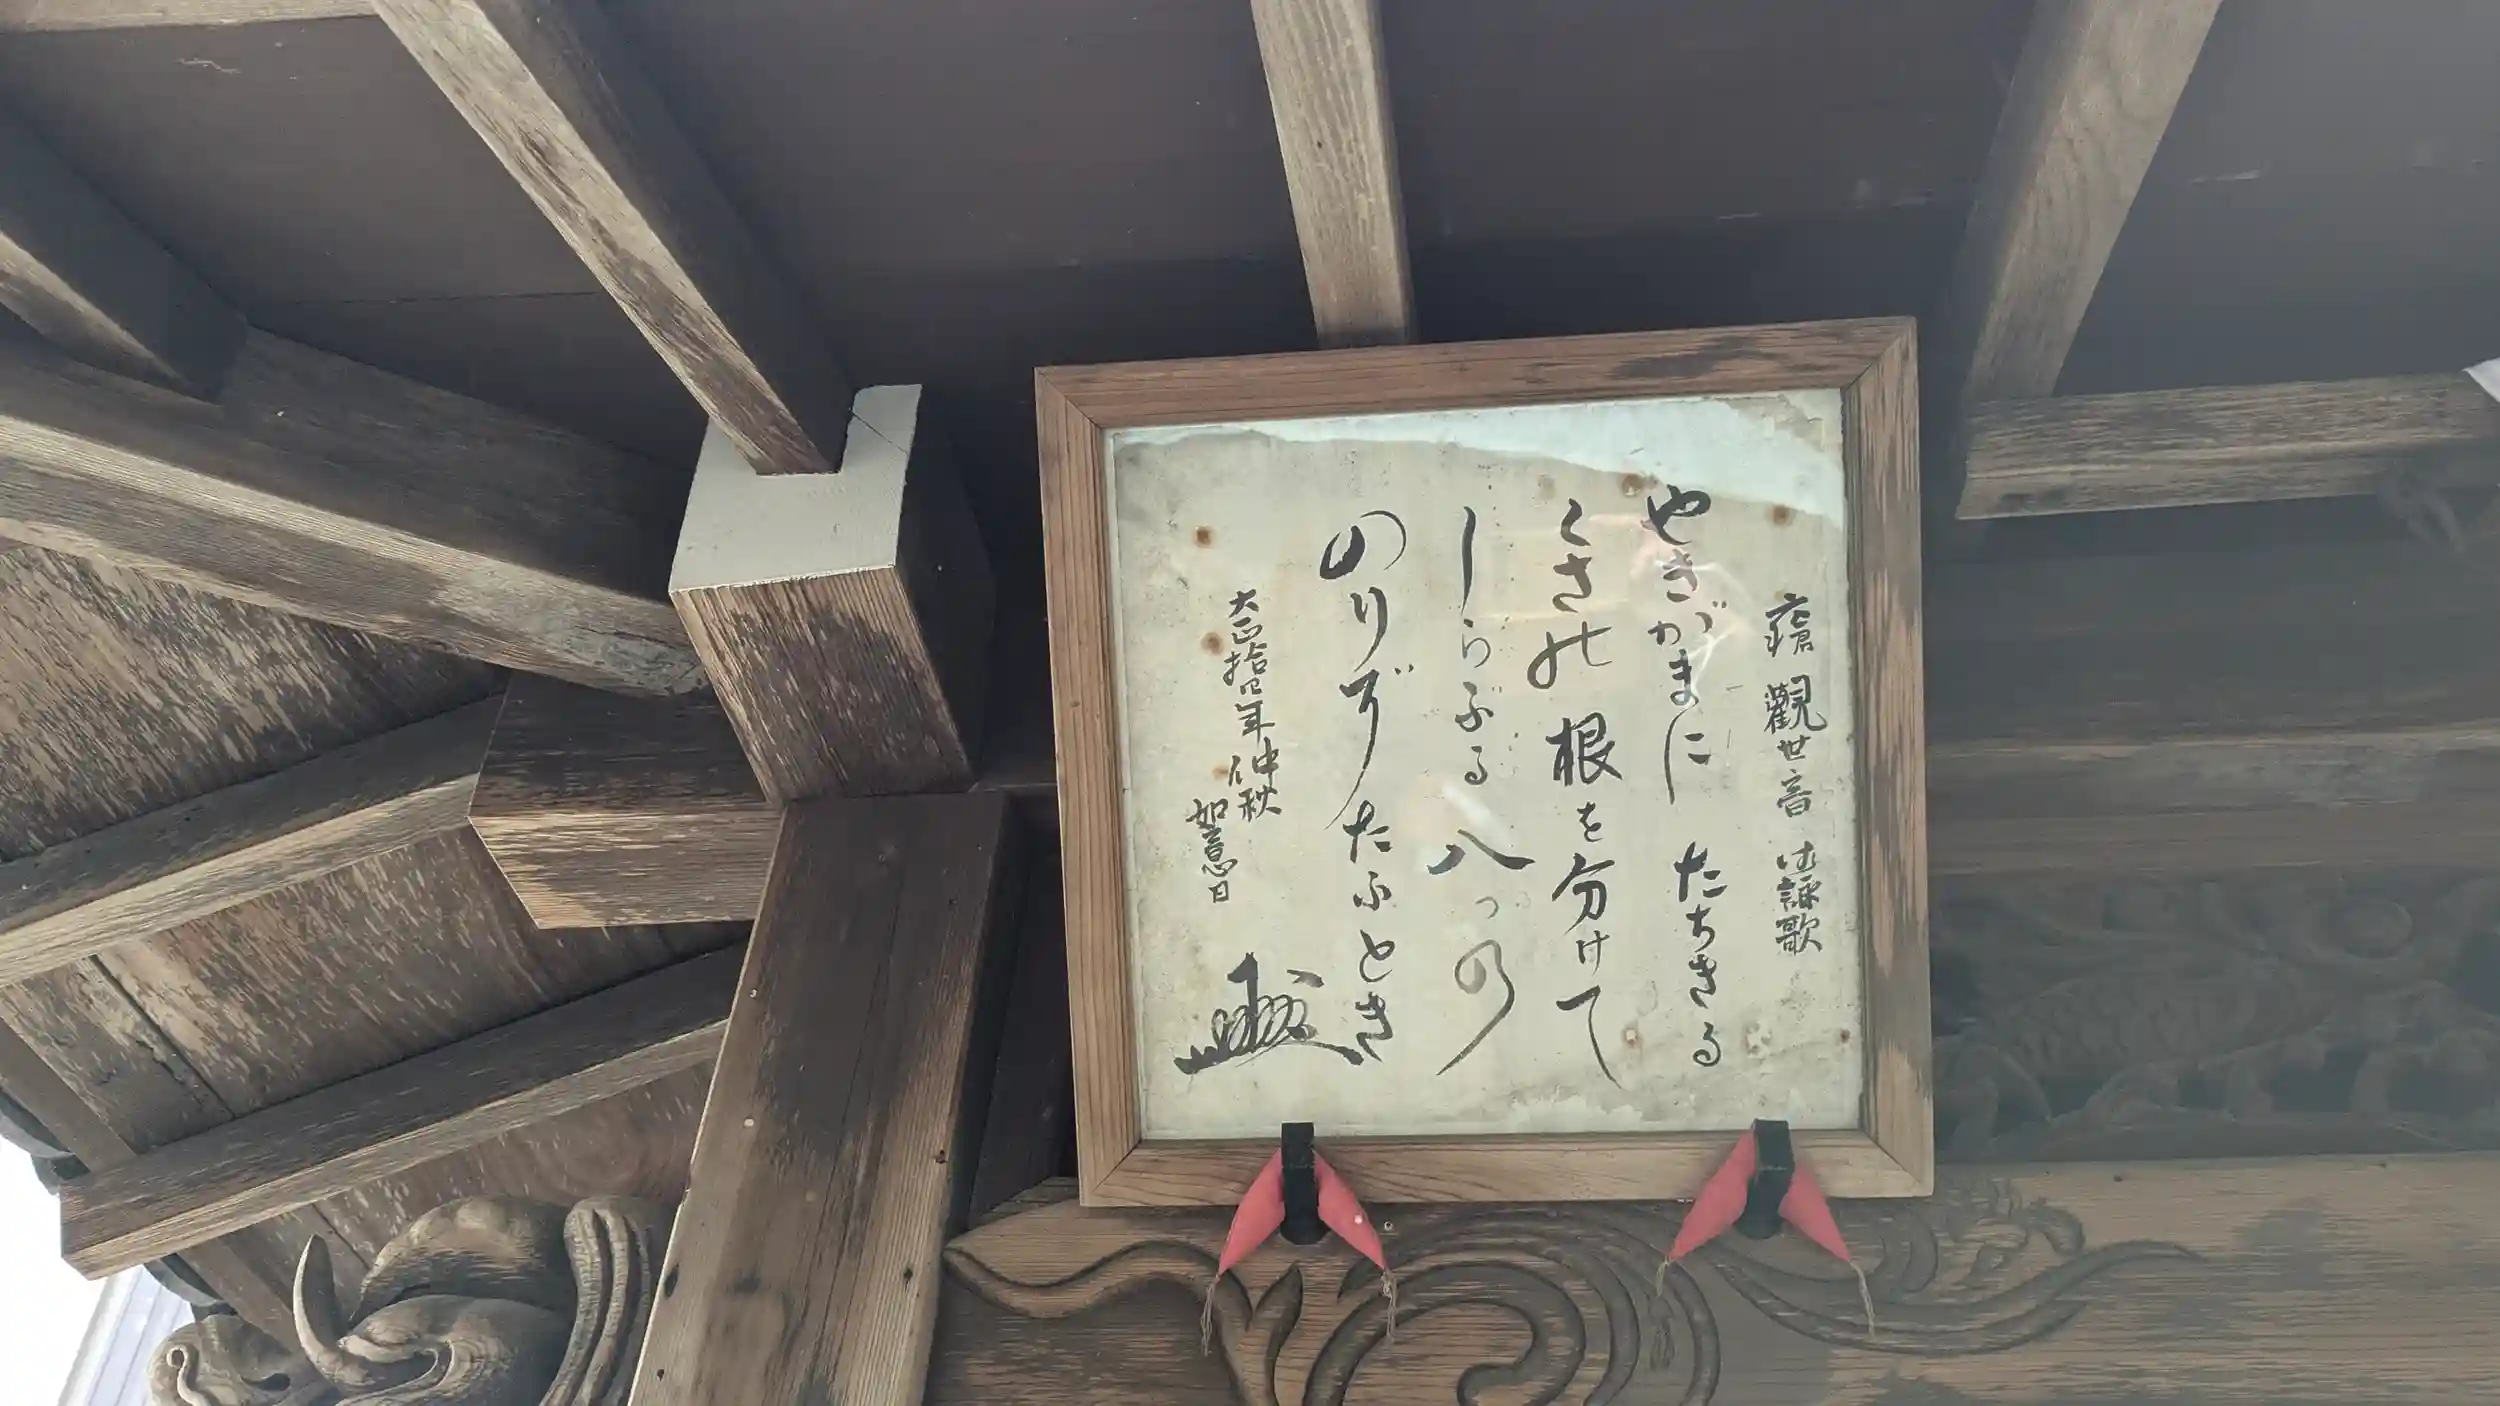 瘡 觀世音 御詠歌
やきがまに たちきる
くさの 根を分けて
しらぶる 八つの
のりぞたふとき
大正拾四年仲秋
如意日